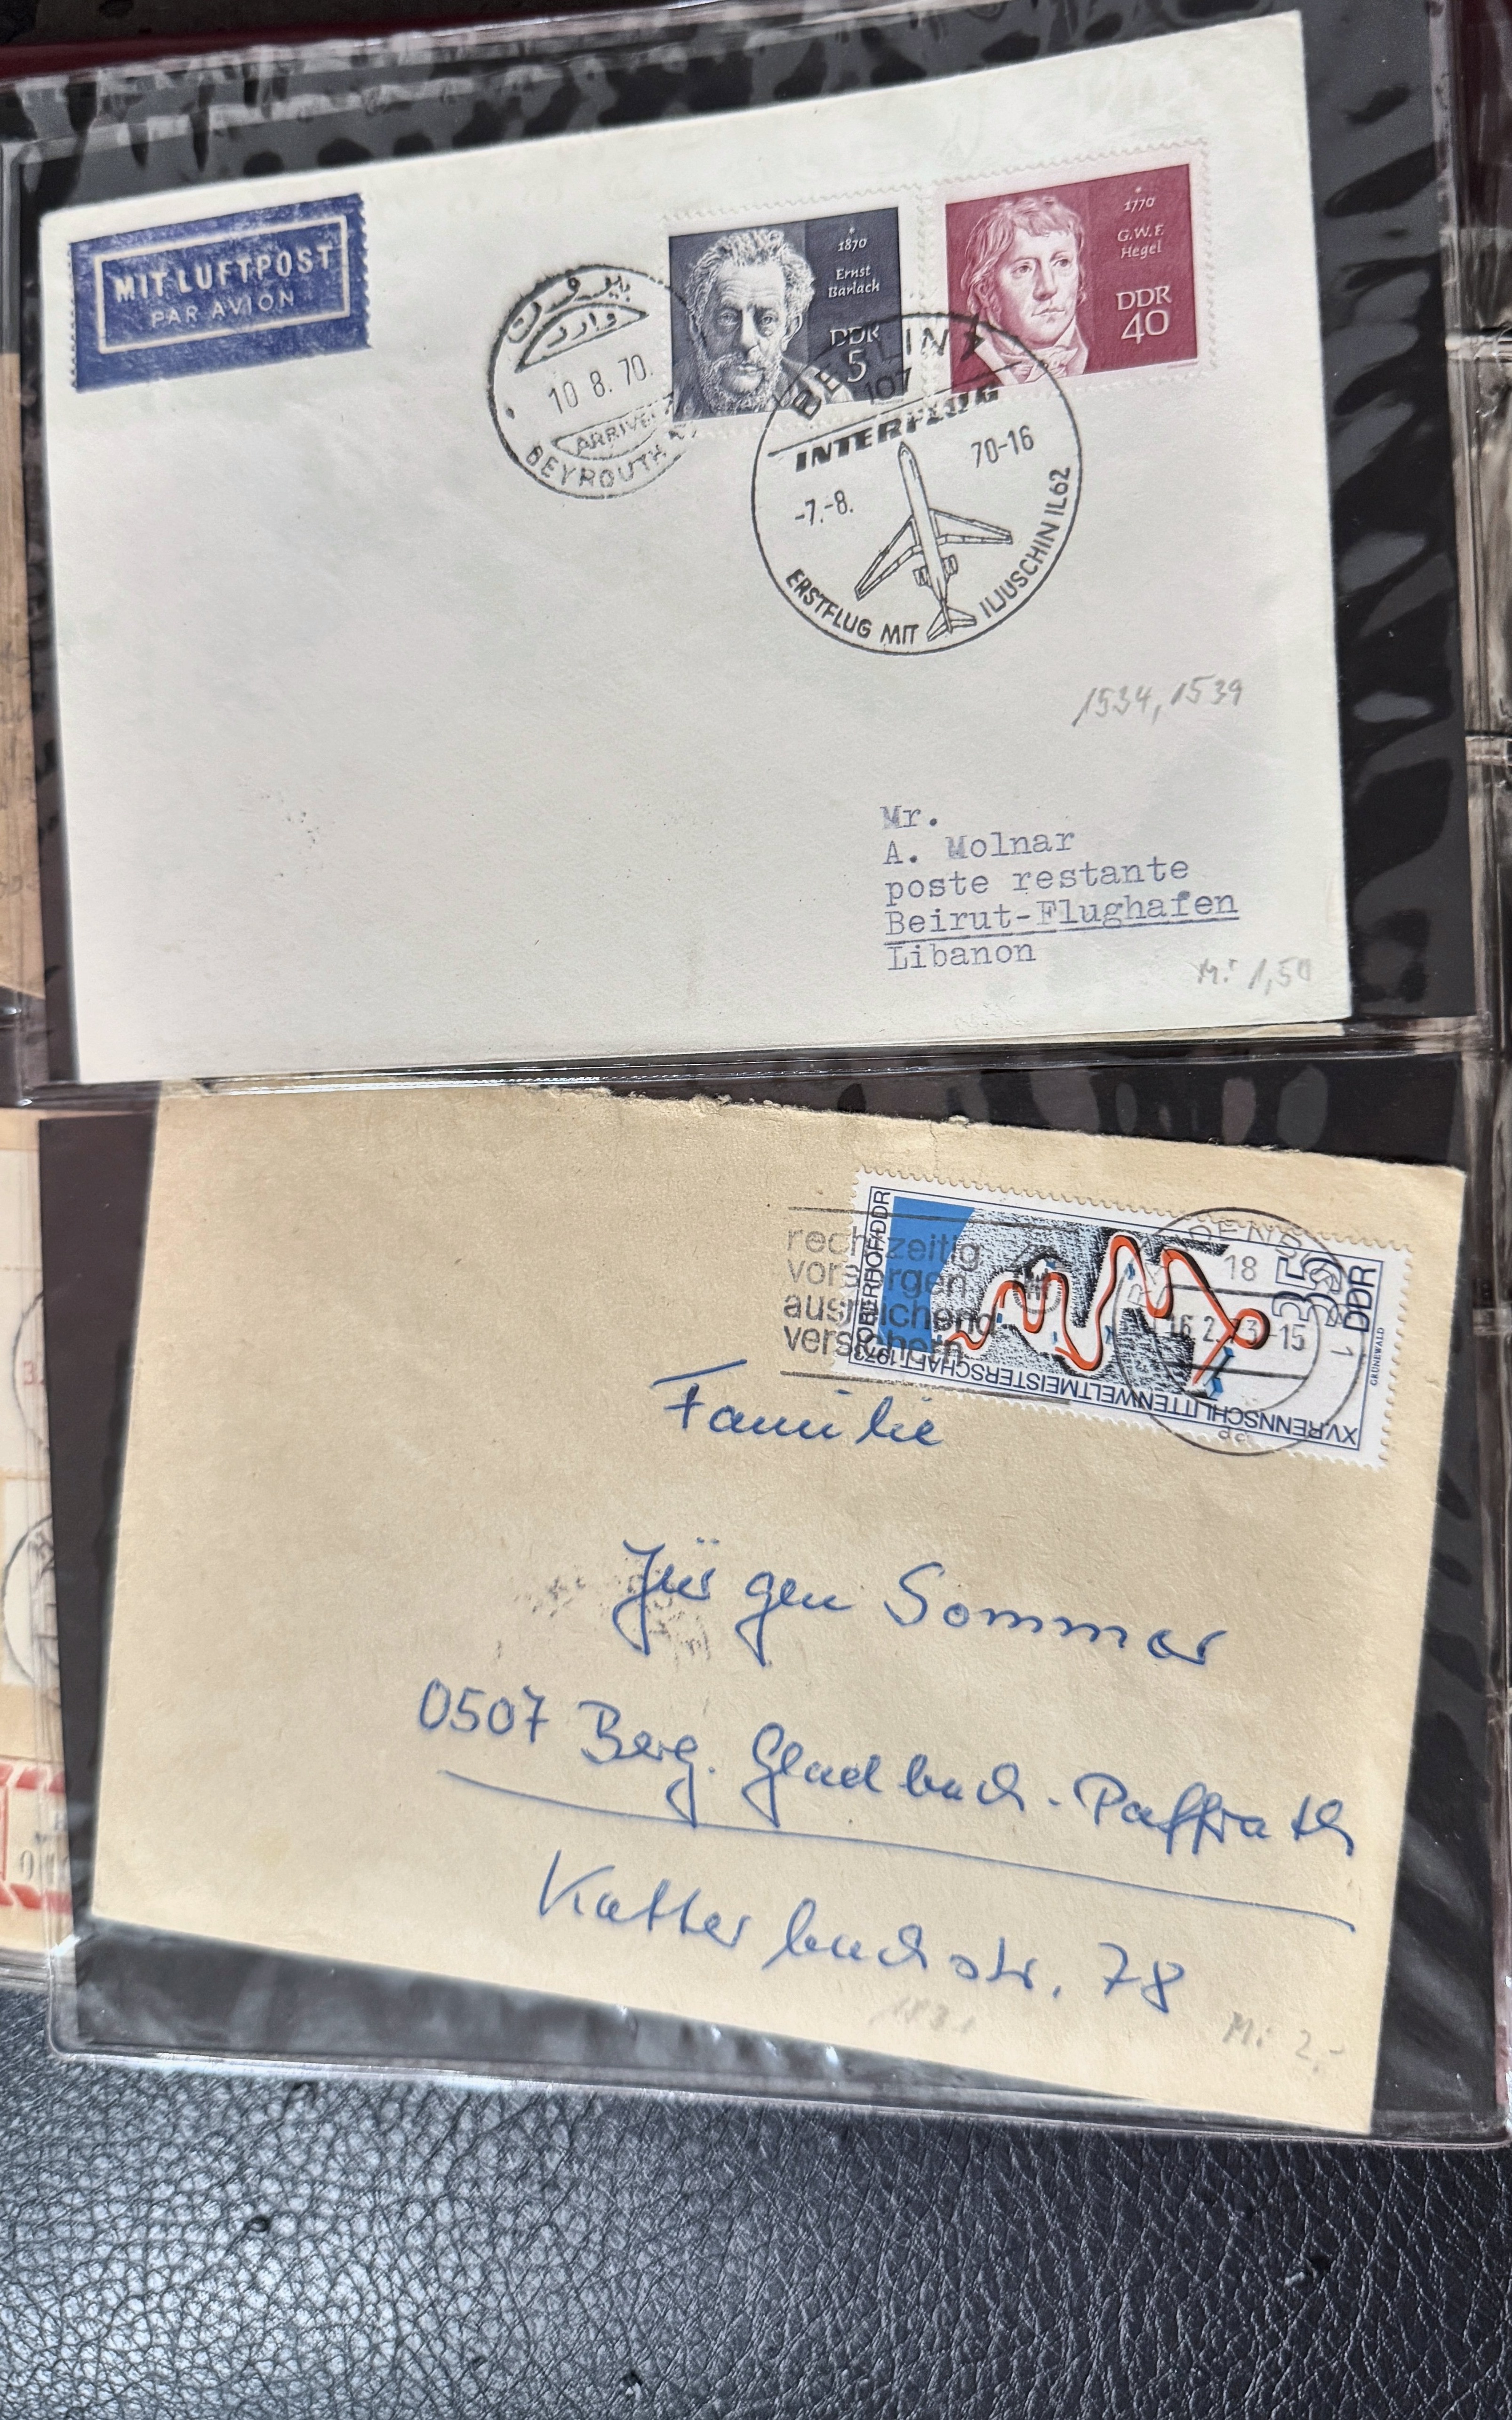 MIT LUFTPOST
PAR AVION
بيروت
وارد
10 8. 70.
ARRIVEE
BEYROUTH
1870
Ernst
Barlach
DDR
5
1770
G.W.F.
Hegel
DDR
40
BERLIN
107
INTERFLUG
-7.-8. 70-16
ERSTFLUG MIT ILJUSCHIN IL62
1534, 1539
Mr.
A. Molnar
poste restante
Beirut-Flughafen
Libanon
Mi 1,50
rechtzeitig
vorsorgen
ausreichend
versichern
OBERHOF/DDR
XV. RENNSCHLITTENWELTMEISTERSCHAFT 1973
35
DDR
GRÜNEWALD
18
16.2.73-15
1
Familie
Jürgen Sommer
0507 Berg. Gladbach-Paffrath
Katterbachstr. 78
Mi 2,-